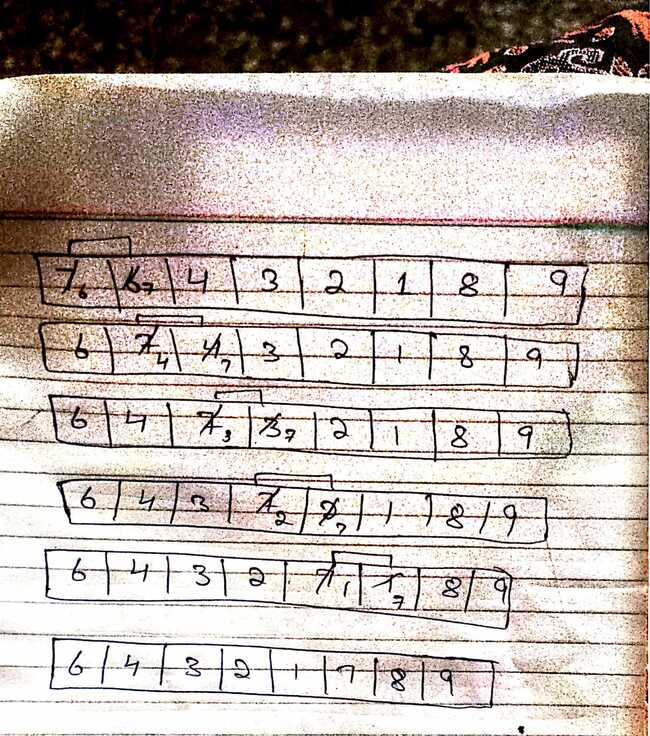 7 6 6 7 4 3 2 1 8 9
6 7 4 4 7 3 2 1 8 9
6 4 7 3 3 7 2 1 8 9
6 4 3 7 2 2 7 1 8 9
6 4 3 2 7 1 1 7 8 9
6 4 3 2 1 7 8 9